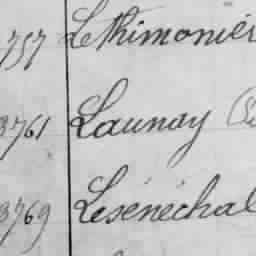 757 Lethimonier
3761 Launay
3769 Lesénéchal